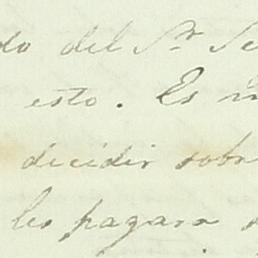 do del Sr Se
esto. Es m
decidir sobr
les pagara s